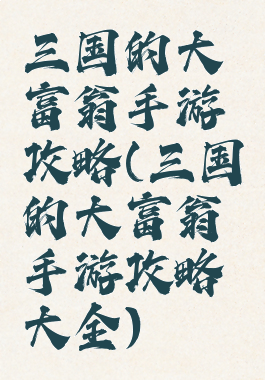 三国的大
富翁手游
攻略(三国
的大富翁
手游攻略
大全)